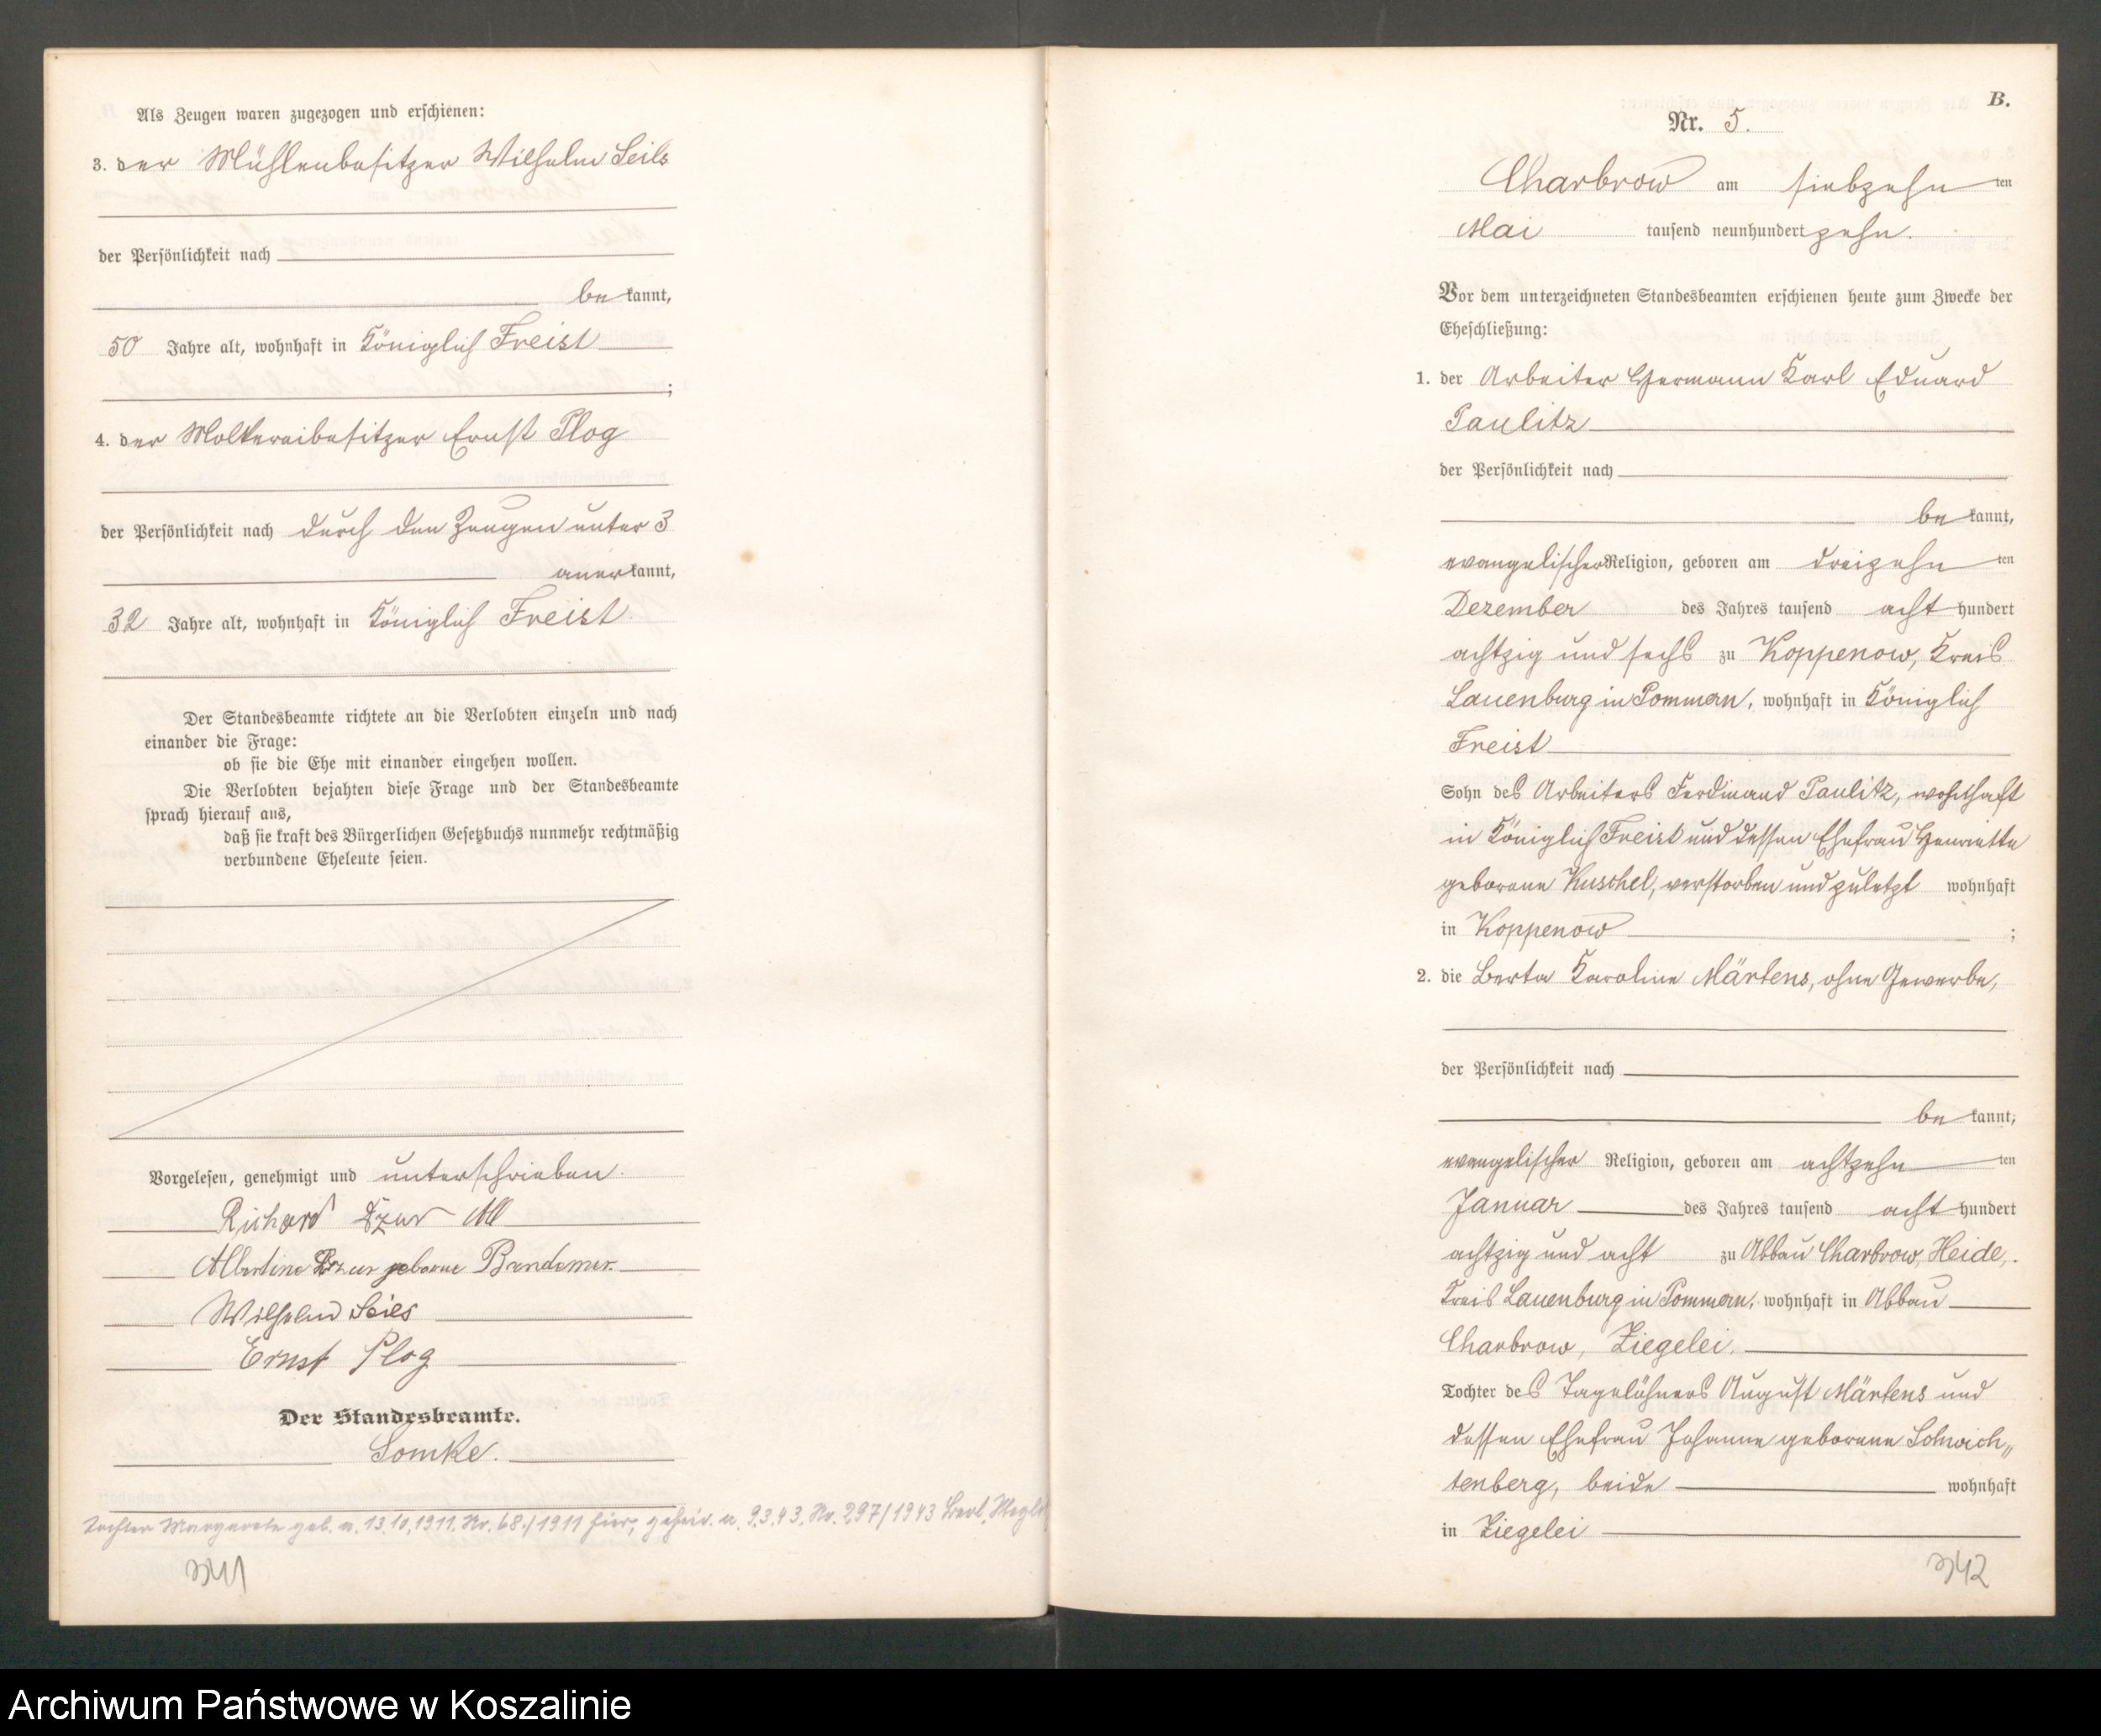 Als Zeugen waren zugezogen und erschienen:
3. der Mühlenbesitzer Wilhelm Seils
der Persönlichkeit nach
be kannt,
50 Jahre alt, wohnhaft in Königlich Freist
;
4. der Molkereibesitzer Ernst Plog
der Persönlichkeit nach durch den Zeugen unter 3
aner kannt,
32 Jahre alt, wohnhaft in Königlich Freist.
Der Standesbeamte richtete an die Verlobten einzeln und nach
einander die Frage:
ob sie die Ehe mit einander eingehen wollen.
Die Verlobten bejahten diese Frage und der Standesbeamte
sprach hierauf aus,
daß sie kraft des Bürgerlichen Gesetzbuchs nunmehr rechtmäßig
verbundene Eheleute seien.
Vorgelesen, genehmigt und unterschrieben.
Richard
Albertine geborne Bandemer.
Wilhelm Seils
Ernst Plog
Der Standesbeamte.
Tochter Margarete geb. a. 13.10.1911. Nr. 68./1911 hier, geheir. a. 9.3.43. Nr. 297/1943
341
B.
Nr. 5.
Charbrow am siebzehn ten
Mai tausend neunhundert zehn.
Vor dem unterzeichneten Standesbeamten erschienen heute zum Zwecke der
Eheschließung:
1. der Arbeiter Hermann Karl Eduard
Paulitz
der Persönlichkeit nach
be kannt,
evangelischer Religion, geboren am dreizehn ten
Dezember des Jahres tausend acht hundert
achtzig und sechs zu Koppenow, Kreis
Lauenburg in Pommern, wohnhaft in Königlich
Freist
Sohn des Arbeiters Ferdinand Paulitz, wohnhaft
in Königlich Freist und dessen Ehefrau Henriette
geborene Kuschel, verstorben und zuletzt wohnhaft
in Koppenow ;
2. die Berta Karoline Märtens, ohne Gewerbe,
der Persönlichkeit nach
be kannt,
evangelischer Religion, geboren am achtzehn ten
Januar des Jahres tausend acht hundert
achtzig und acht zu Abbau Charbrow, Heide,
Kreis Lauenburg in Pommern, wohnhaft in Abbau
Charbrow, Ziegelei.
Tochter des Tagelöhners August Märtens und
dessen Ehefrau Johanne geborene Schwich„
tenberg, beide wohnhaft
in Ziegelei
342
Archiwum Państwowe w Koszalinie